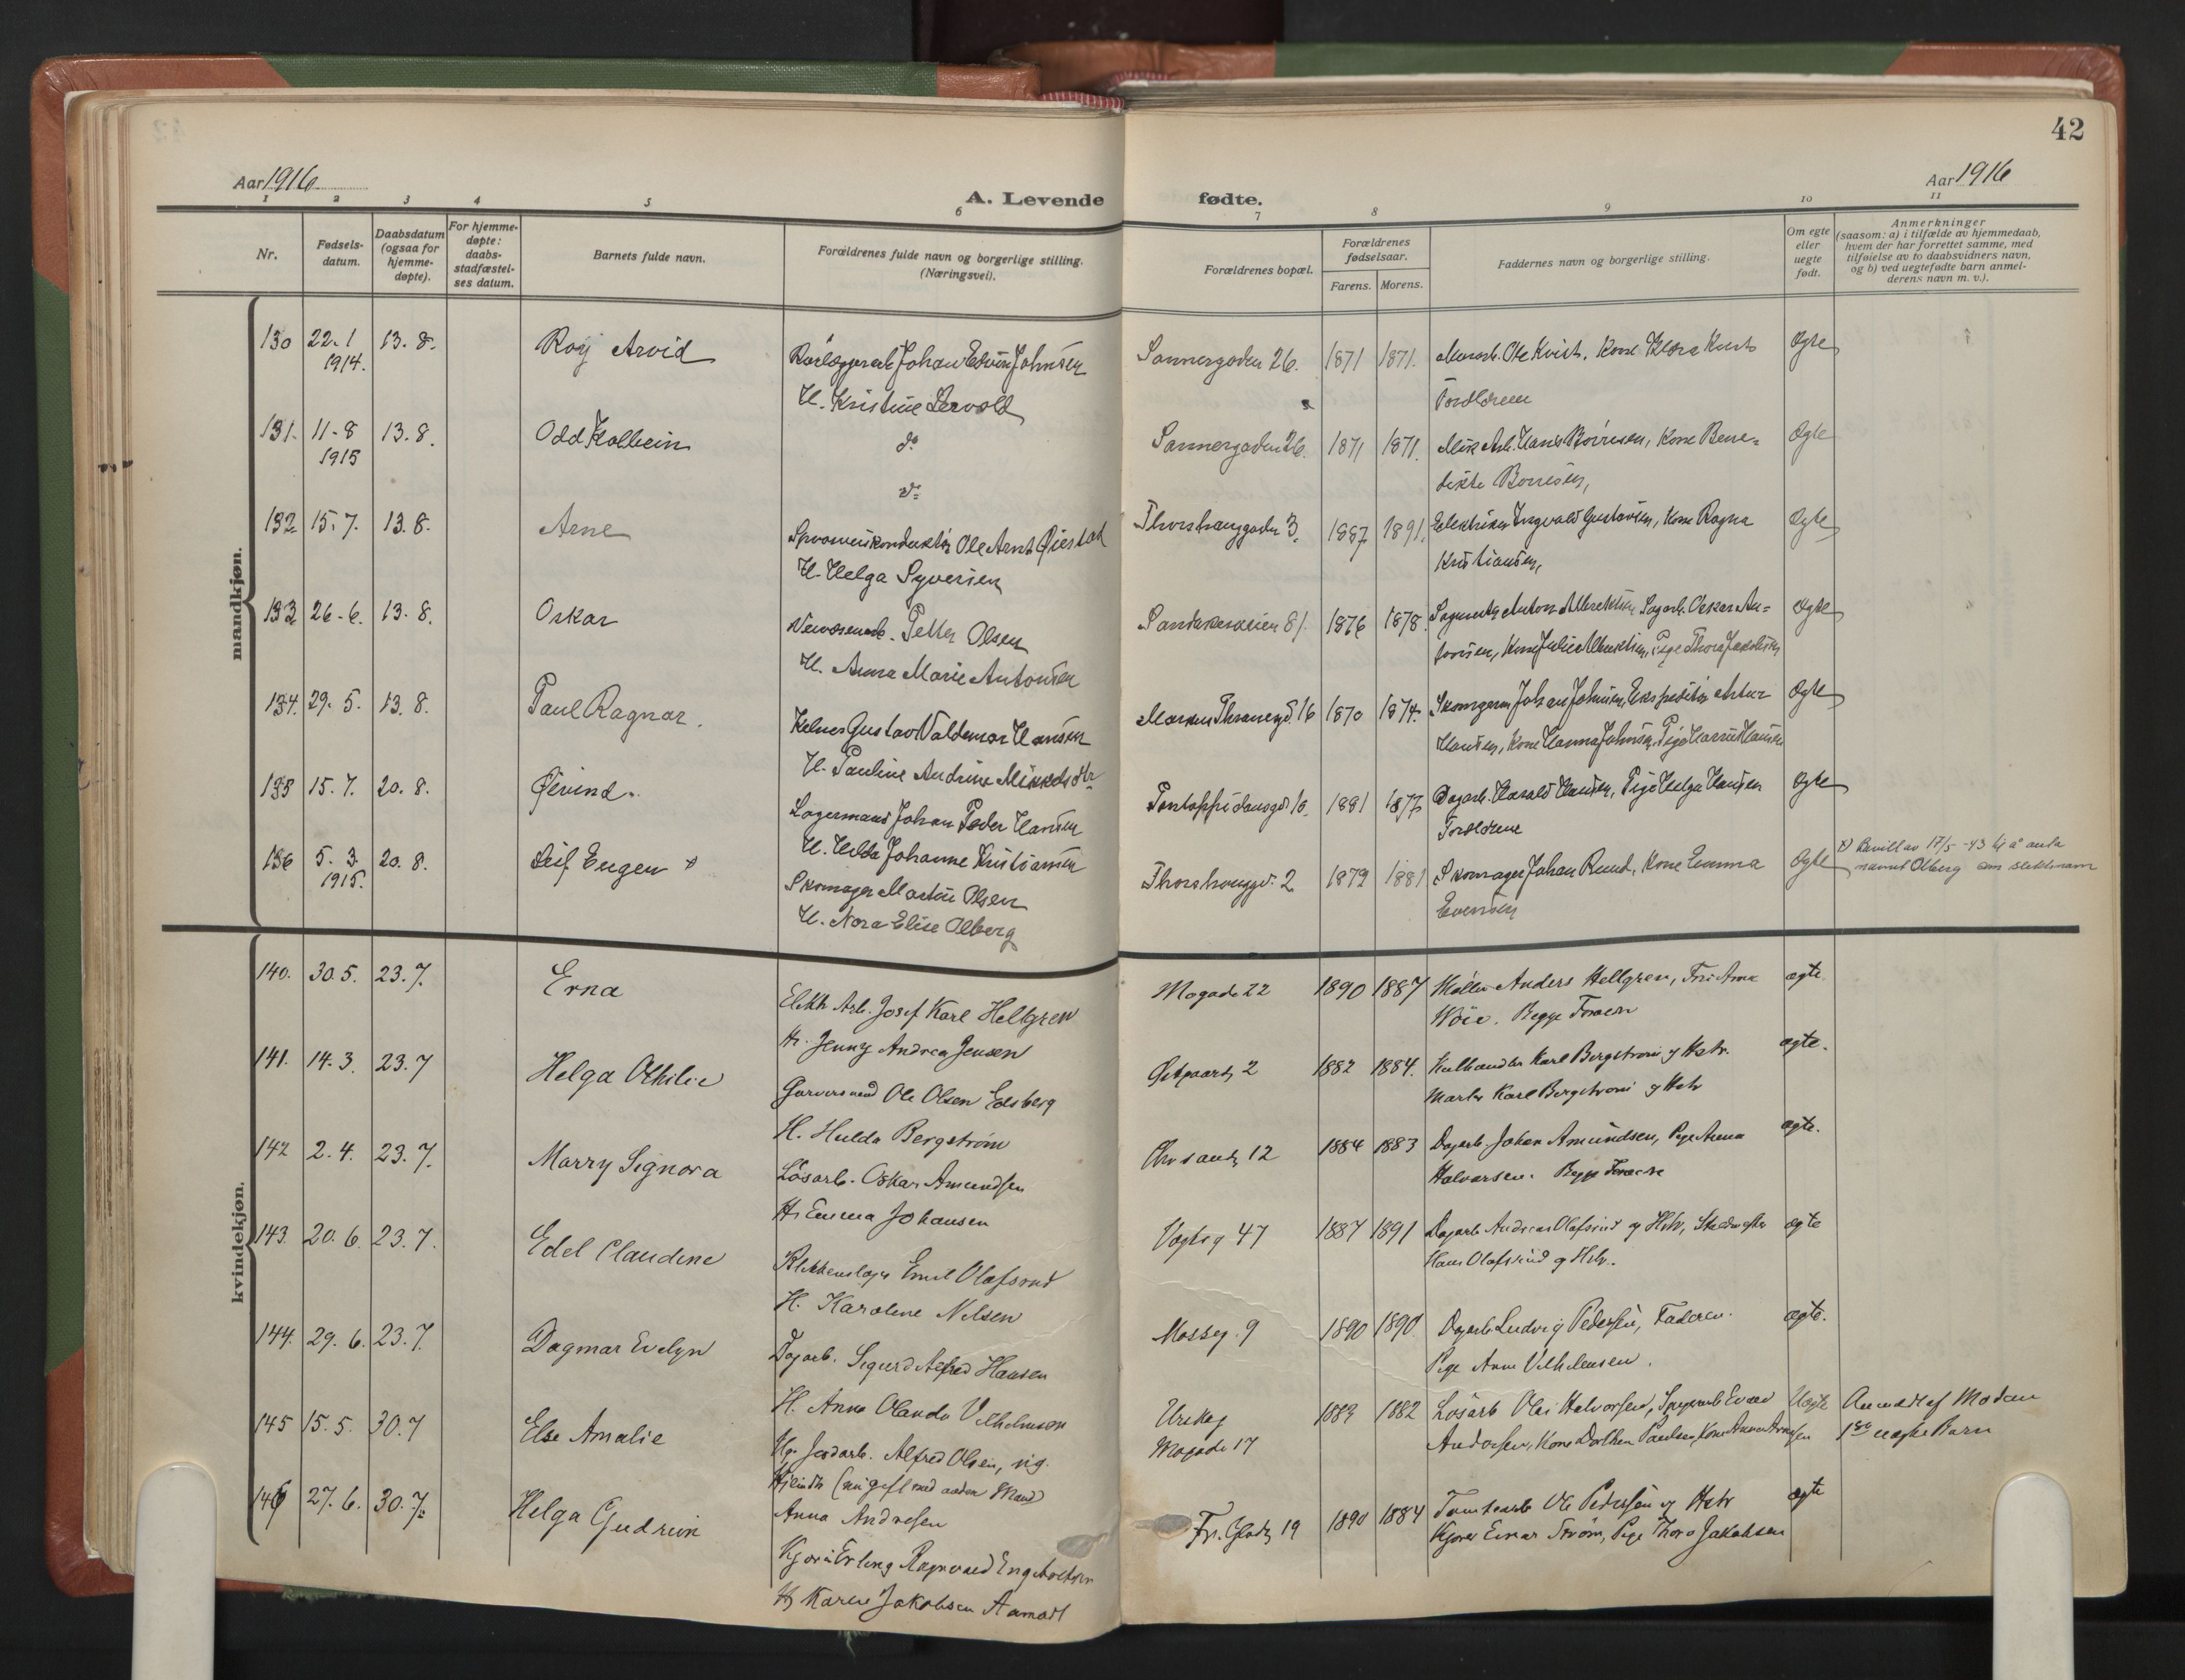 42
Aar 1916
Aar 1916
A. Levende fødte.
1 2 3 4 5 6 7 8 9 10 11
Nr.
Fødsels-
datum.
Daabsdatum
(ogsaa for
hjemme-
døpte).
For hjemme-
døpte:
daabs-
stadfæstel-
ses datum.
Barnets fulde navn.
Forældrenes fulde navn og borgerlige stilling.
(Næringsvei).
Forældrenes bopæl.
Forældrenes
fødselsaar.
Farens. Morens.
Faddernes navn og borgerlige stilling.
Om egte
eller
uegte
født.
Anmerkninger
(saasom: a) i tilfælde av hjemmedaab,
hvem der har forrettet samme, med
tilføielse av to daabsvidners navn,
og b) ved uegtefødte barn anmel-
derens navn m. v.).
mandkjøn.
130 22.1 13.8. Roy Arvid Johan Edvin Johnsen Sannergaden 26. 1871 1871. Ole Kvist, Kone Klara Kvist Ægte
1914. H. Kristine Forældrene
131. 11-8 13.8. Odd Kolbein do Sannergaden 26. 1871 1871. Hans Børresen, Kone Bene- Ægte
1915 do dikte Børresen,
132 15.7. 13.8. Arne Sporveiskonduktør Ole Arnt Øiestad Thorshauggaden 3. 1887 1891. Elektriker Ingvald Gustavsen, Kone Ragna Ægte
H. Helga Syversen Kristiansen,
133 26-6. 13.8. Oskar Petter Olsen 81. 1876 1878. Anton Albrektsen, Sagarb. Oskar An- Ægte
H. Anna Marie Antonsen tonsen, Kone Julie Albrektsen, Pige Thora Jakobsen
134. 29.5. 13.8. Paul Ragnar. Kelner Gustav Valdemar Hansen Markus Thranesgd. 16 1870 1874. Johan Johnsen, Ekspeditør Artur Ægte
H. Pauline Andrine Mikkelsdtr. Hansen, Kone Hanna Johnsen, Pige Hansen
135 15.7. 20.8. Øivind. Lagermand Johan Peder Hansen Pontoppidansgd. 10. 1881 1877 Dagarb. Harald Hansen, Pige Helga Hansen Ægte
H. Hilda Johanne Kristiansen Forældrene
136 5.3. 20.8. Leif Eugen x) Skomager Martin Olsen Thorshouggd. 2 1879 1881 Skomager Johan Ruud, Kone Emma Ægte x) Bevill av 17/5 -43 til å anta
1915. H. Nora Elise Olberg Evensen navnet Olberg som slektsnavn
kvindekjøn.
140. 30.5. 23.7. Erna Elektr. Arb. Josef Karl Hellgren Mogade 22 1890 1887 Møller Anders Hellgren, Frk. Anna ægte.
H. Jenny Andrea Jensen Wöie. Begge Foræ
141. 14.3. 23.7 Helga Othilie Garversvend Ole Olsen Edsberg 2 1882 1884. Kulhandler Karl Bergstrøm og Hstr. ægte.
H. Hulda Bergstrøm Karl Bergstrøm og Hstr
142 2.4. 23.7. Marry Signora Løsarb. Oskar Amundsen 12 1884 1883 Dagarb. Johan Amundsen, Pige Anna ægte.
H. Emma Johansen Halvorsen. Begge Foræ
143. 20.6. 23.7. Edel Claudine Blikkenslager Emil Olafsrud Vogtsg 47 1887 1891 Dagarb. Andreas Olafsrud og Hstr, ægte
H. Karoline Nilsen Hans Olafsrud og Hstr.
144. 29.6. 23.7. Dagmar Evelyn Dagarb. Sigurd Alfred Hansen Mosseg. 9 1890 1890 Dagarb. Ludvig Pedersen, Faderen. ægte.
H. Anna Olanda Vilhelmsen Pige Anna Vilhelmsen.
145 15.5. 30.7 Else Amalie Ug. Jordarb. Alfred Olsen, ug. 1883 1882 Løsarb Olai Halvorsen, Uegte Anmeldt af Moderen
(nu gift med anden Mand) Mogade 17 Andersen, Kone Dorthea Paulsen, Kone Anna 1ste uegte Barn
Anna Andresen
146 27.6. 30.7. Helga Gudrun Erling Ragnvald Engebretsen Fr. Gladsg 19 1890 1884 Tomtearb Ole Pedersen og Hstr ægte
H. Karen Jakobsen Aamodt Kjører Einar Strøm, Pige Thora Jakobsen